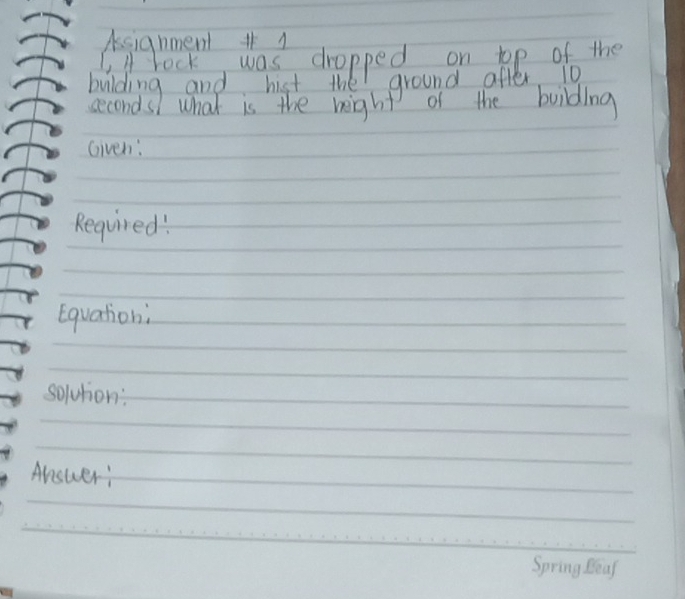 Assignment # 1
1, A rock was dropped on top of the
building and hist the ground after 10
seconds, what is the height of the building
Given:
Required:
Equation:
Solution:
Answer:
Spring Leaf